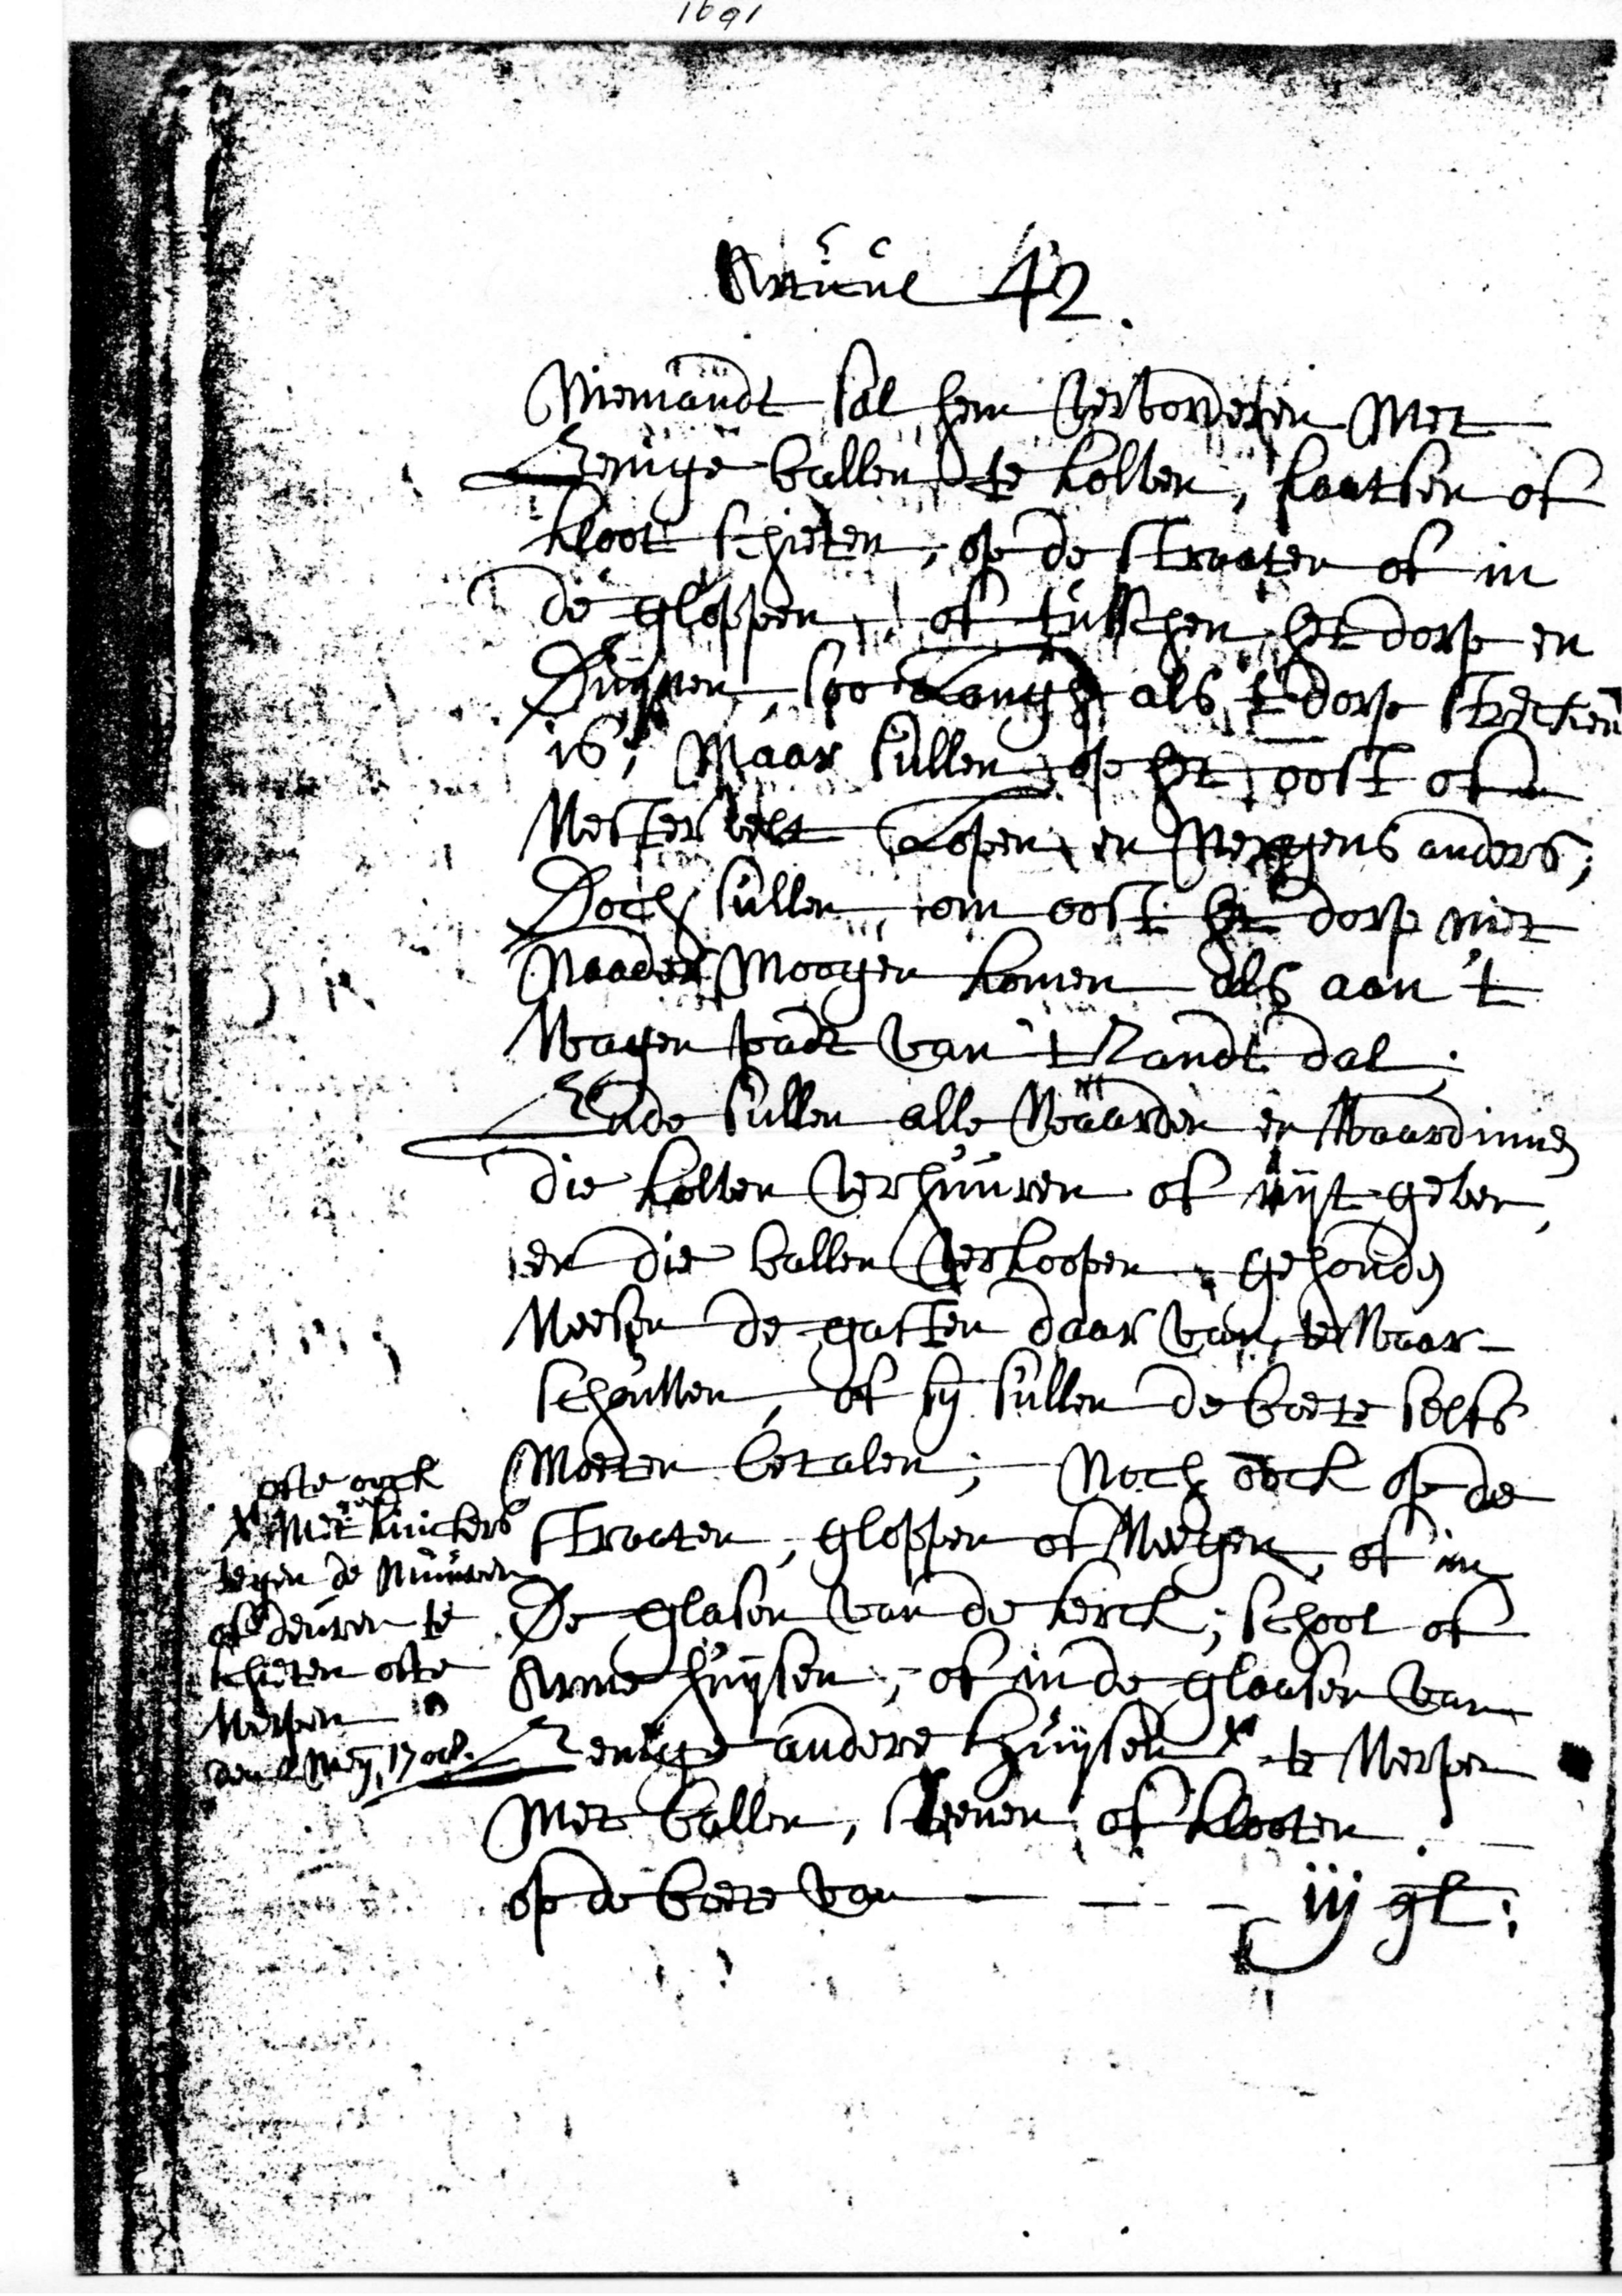 1691
Articul 42.
Niemandt sal hem vervorderen Met
Eenige ballen te kolven, kaatsen of
kloot schieten, op de straaten of in
de gloppen, of tusschen het dorp en
Duijnen, soo Langh als 't dorp streckend
is, Maar sullen op het oost of
Westervelt Lopen en Nergens anders;
Doch sullen om oost het dorp niet
Naader Moogen komen als aan 't
Wagen padt van 't Zandt dal.
Ende sullen alle Waarden en Waardinnen
die kolven verhuuren of uijt geven,
en die ballen verkoopen, gehouden
Weesen de gasten daar van te Waar-
schouwen, of sij sullen de boete selfs
Moeten betalen; Noch oock op de
straaten, gloppen of Weegen, of in
De glasen van de kerck, school of
Arme huijsen, of in de glaasen van
Eenige andere huijsen x te Werpen
Met ballen, steenen of klooten.
op de boete van - - - iij gl:
ofte oock
x Met knickers
tegen de Muuren
of deuren te
schieten ofte
Werpen
den Meij, 1708.